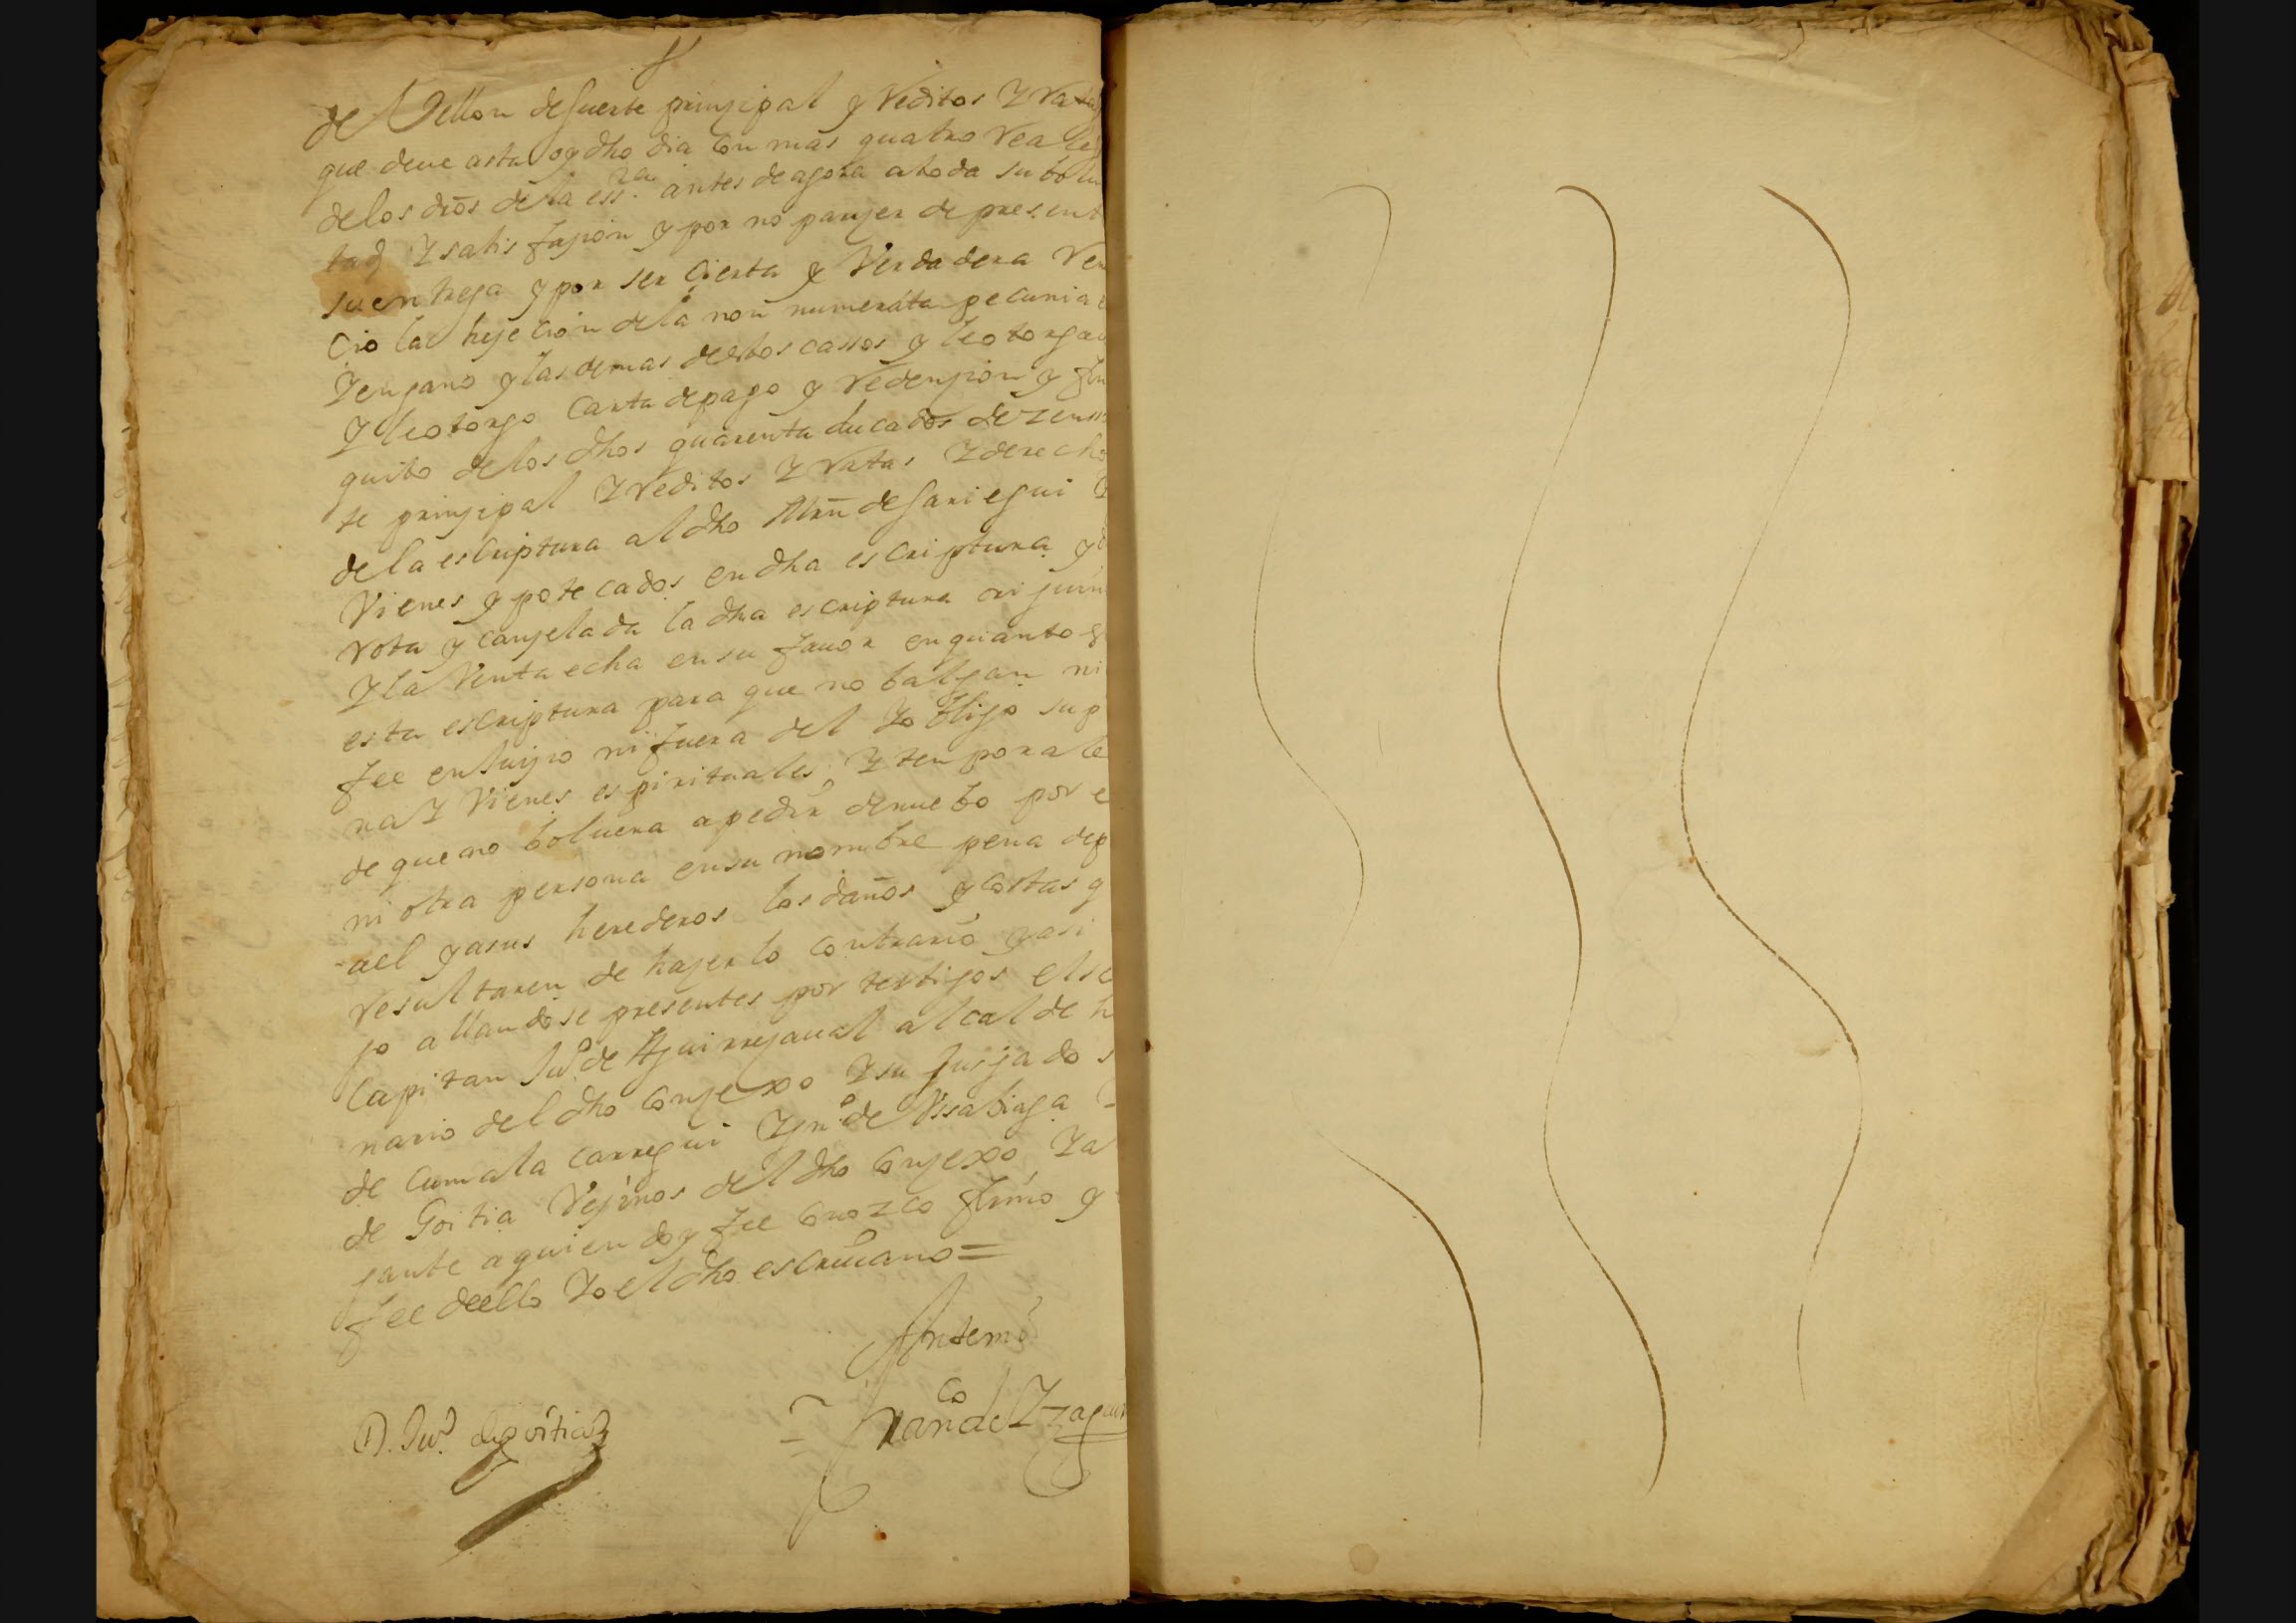 de Vellon de suerte prinsipal y Reditos Y Ratas
que deue asta oy dho dia con mas quatro Reales
de los dros de la essra antes de agora a toda su bolu
tad Y satisfasion y por no pareser de present
su entrega y por ser Cierta y Verdadera Ren
Cio la hejecion de la non numerata pecunia
Y engano y las demas de estos cassos y le otorgau
Y le otorgo Carta de pago y Redension y fin
quito de los dhos quarenta ducados de zenss
te prinsipal Y Reditos Y Ratas Y derecho
de la escriptura al dho Mrn de Gariegui
Vienes ypotecados en dha escriptura y
Rota y canselada la dha escriptura orijin
Y la Venta echa en su fauor en quanto
esta escriptura para que no balgan ni
fee en Juisio ni fuera del Y obligo su p
na Y Vienes espirituales Y temporale
de que no boluera a pedir de nuebo por e
ni otra persona en su nombre pena de p
ael y asus herederos los daños y costas q
Resultaren de haser lo Contrario y asi
go allandose presentes por testigos el sr
Capitan Juo de Aguirresaual alcalde h
nario del dho Consexo Y su Jusgado
de Cumalacarregui Y Juo de Ussabiaga
de Goitia Vesinos del dho Consexo Y a
gante a quien doy fee Conozco firmo y
fee de ello Yo el dho escriuano =
Antemi
D. Juo de goitia
= Franco de Yzaguirr